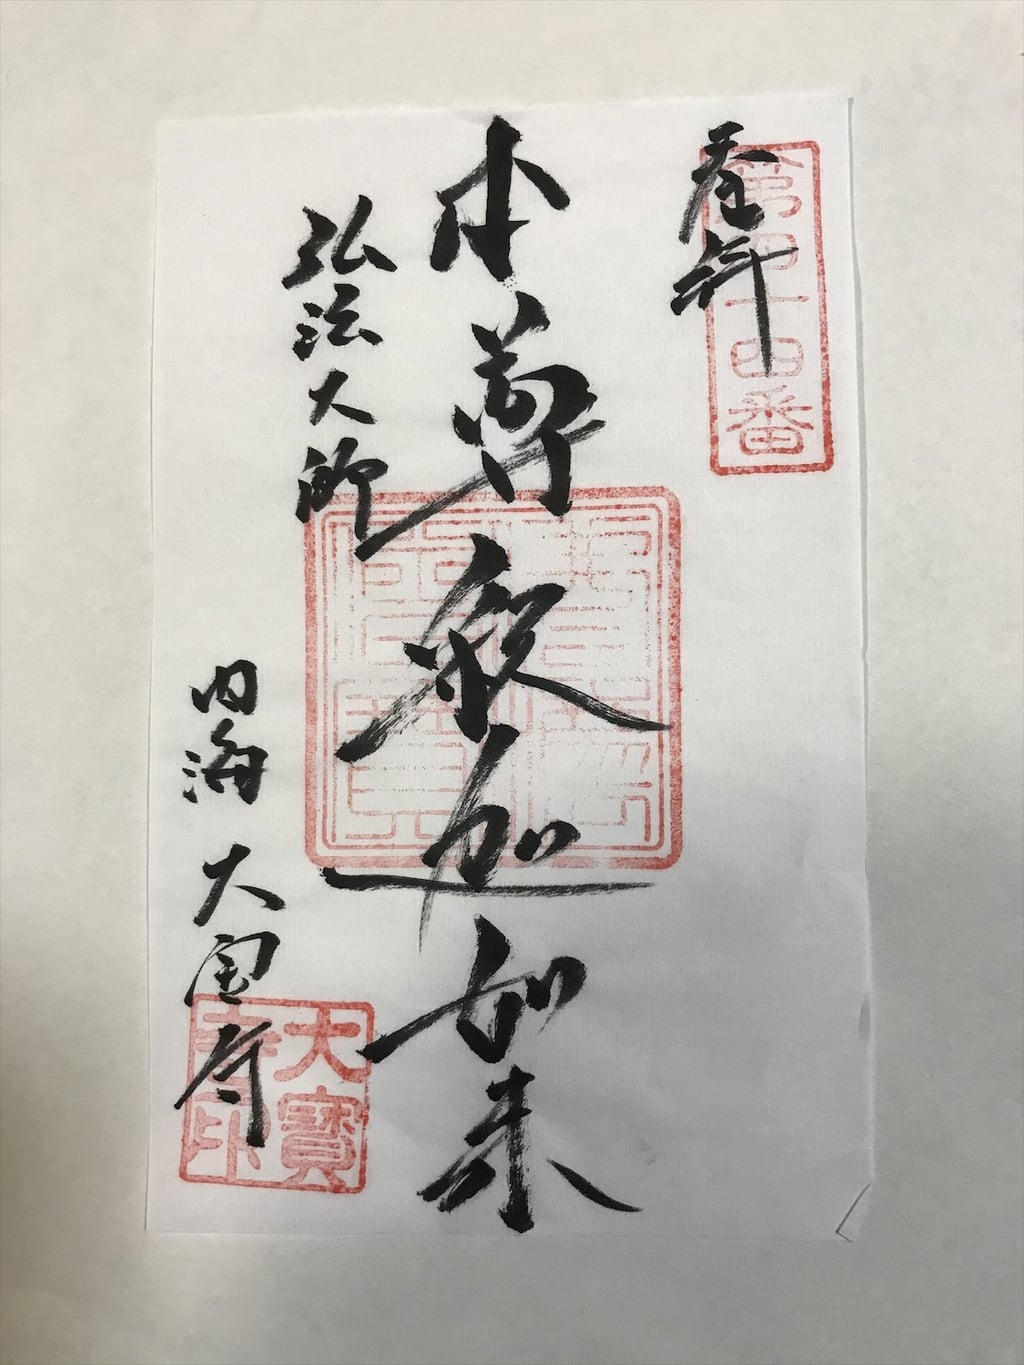 奉拝
第四十四番
本尊釈迦如来
弘法大師
内海 大宝寺
大寶寺印